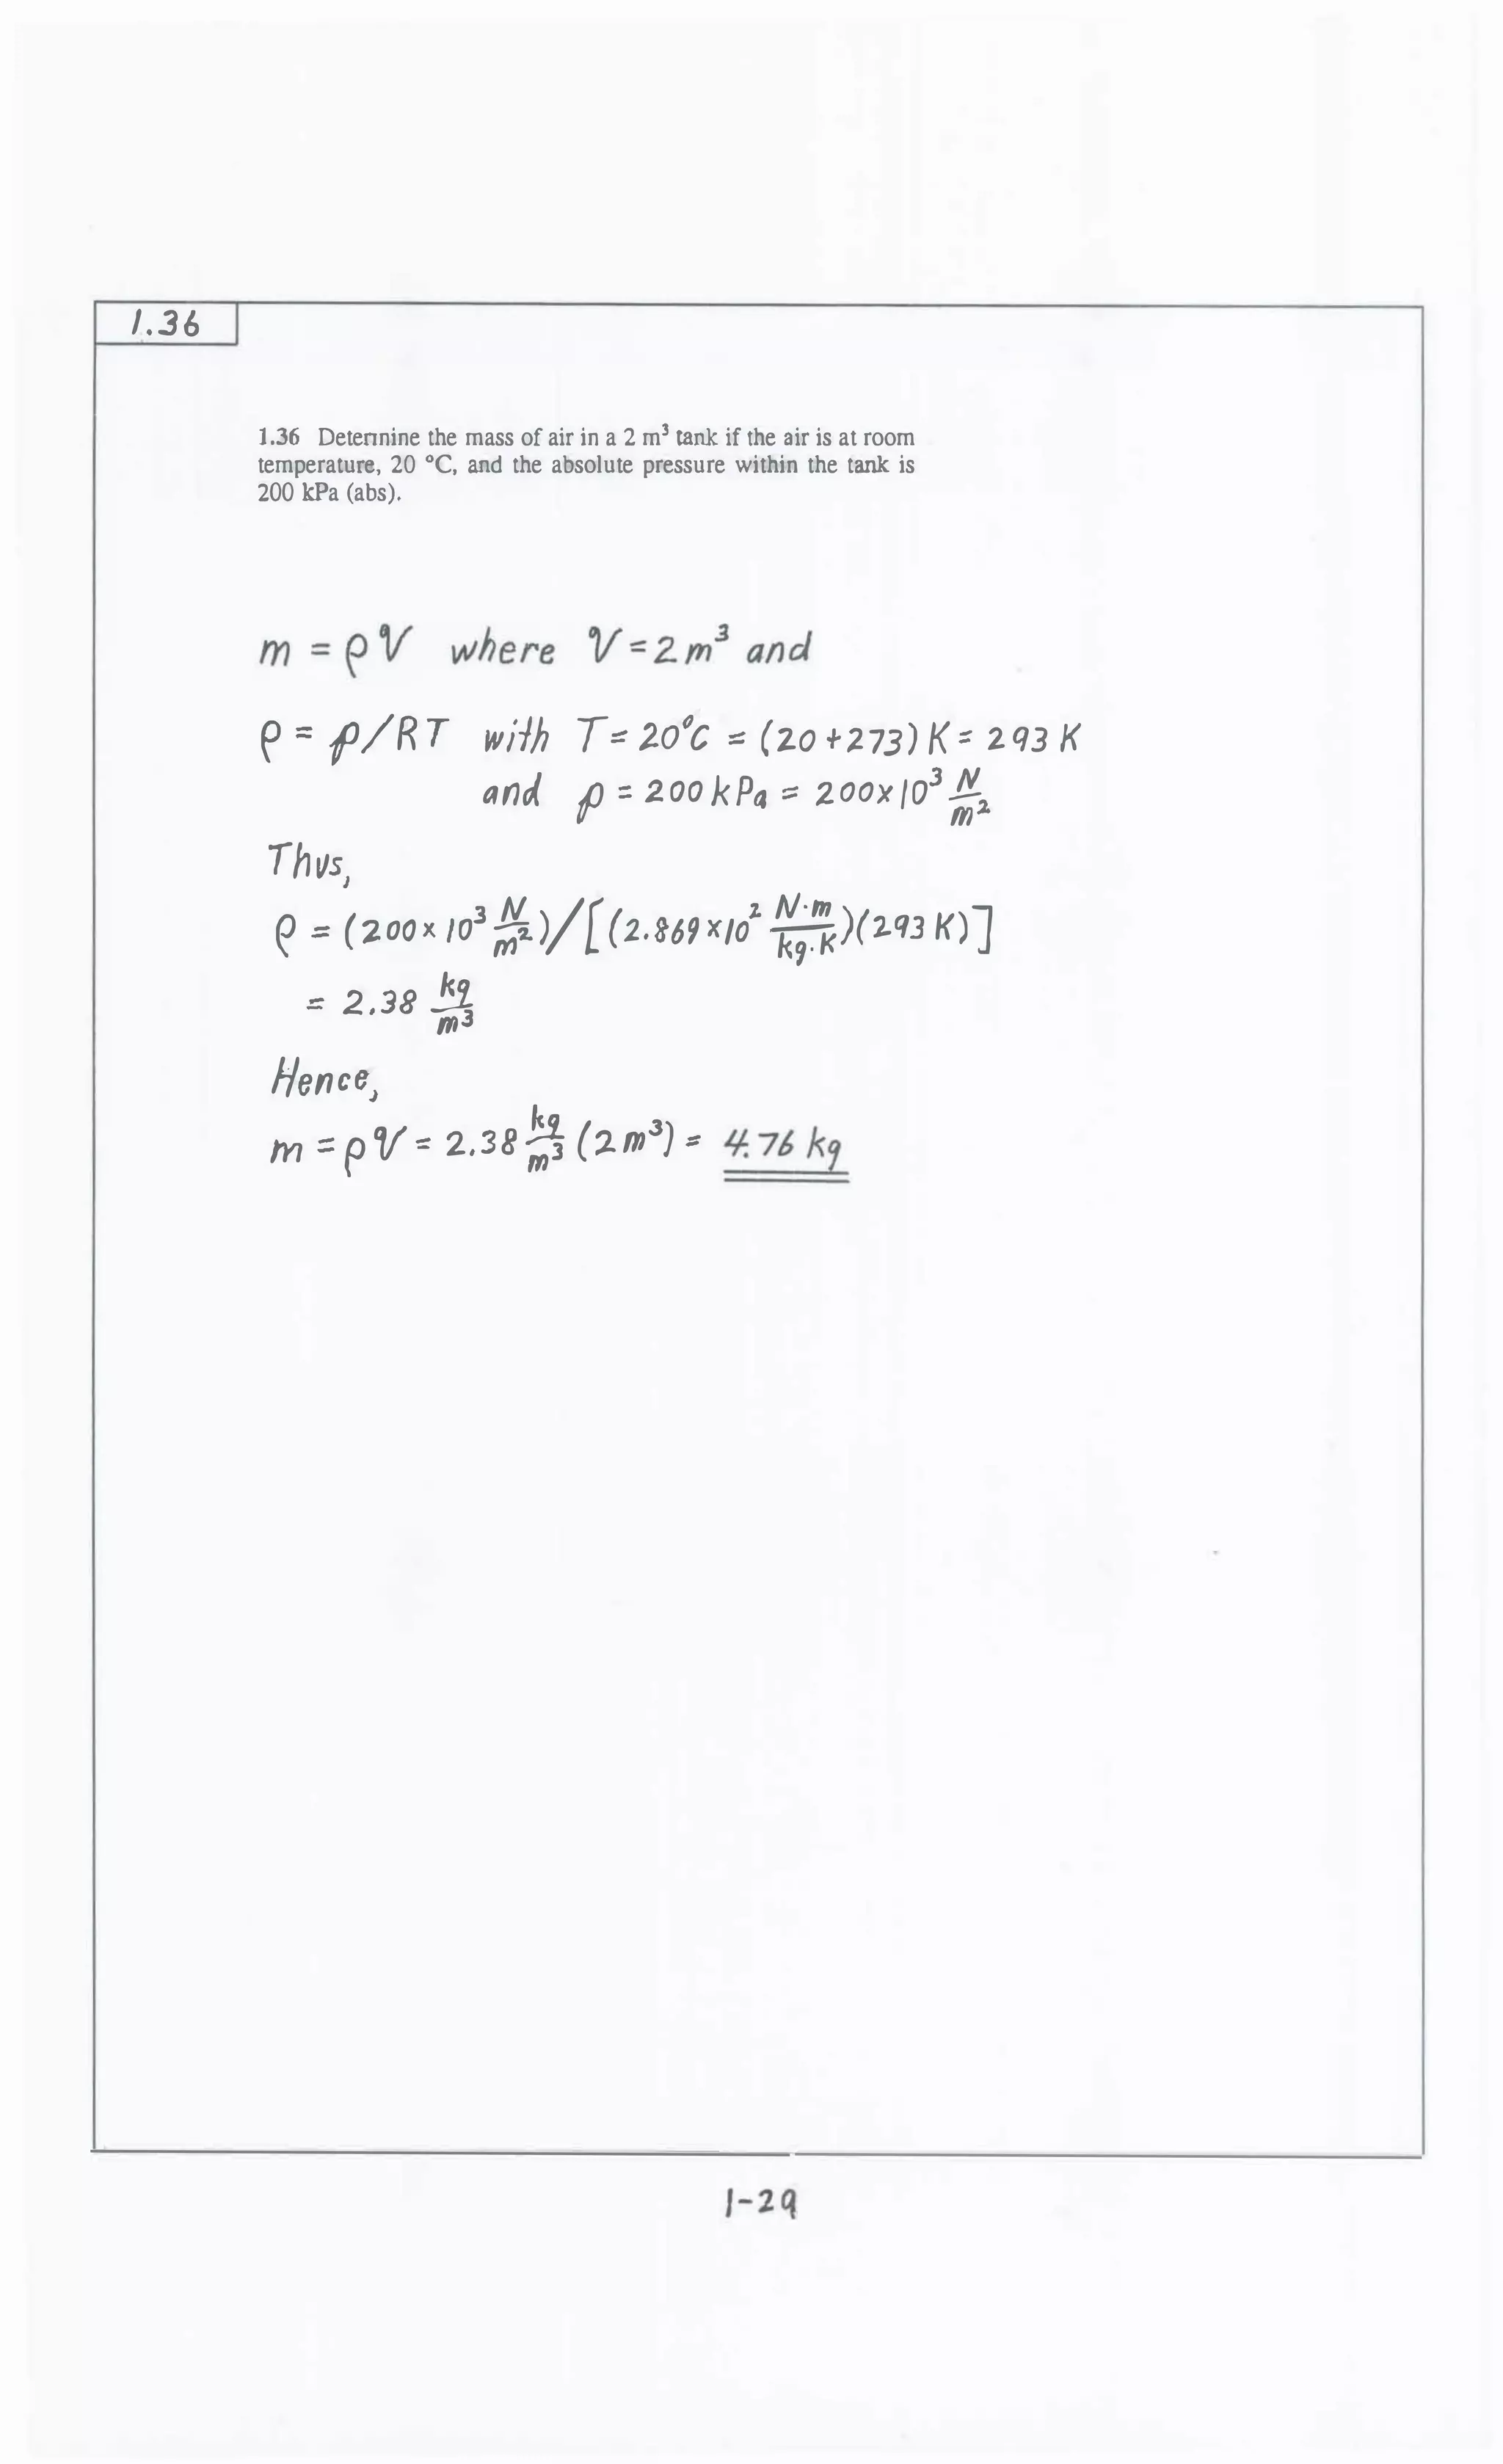 1.36
1.36 Determine the mass of air in a 2 m³ tank if the air is at room
temperature, 20 °C, and the absolute pressure within the tank is
200 kPa (abs).
m = ρV where V = 2 m³ and
ρ = p/RT with T = 20°C = (20+273) K = 293 K
and p = 200 kPa = 200×10³ N/m²
Thus,
ρ = (200×10³ N/m²)/[(2.869×10² N·m/kg·K)(293 K)]
= 2.38 kg/m³
Hence,
m = ρV = 2.38 kg/m³ (2 m³) = 4.76 kg
1-29